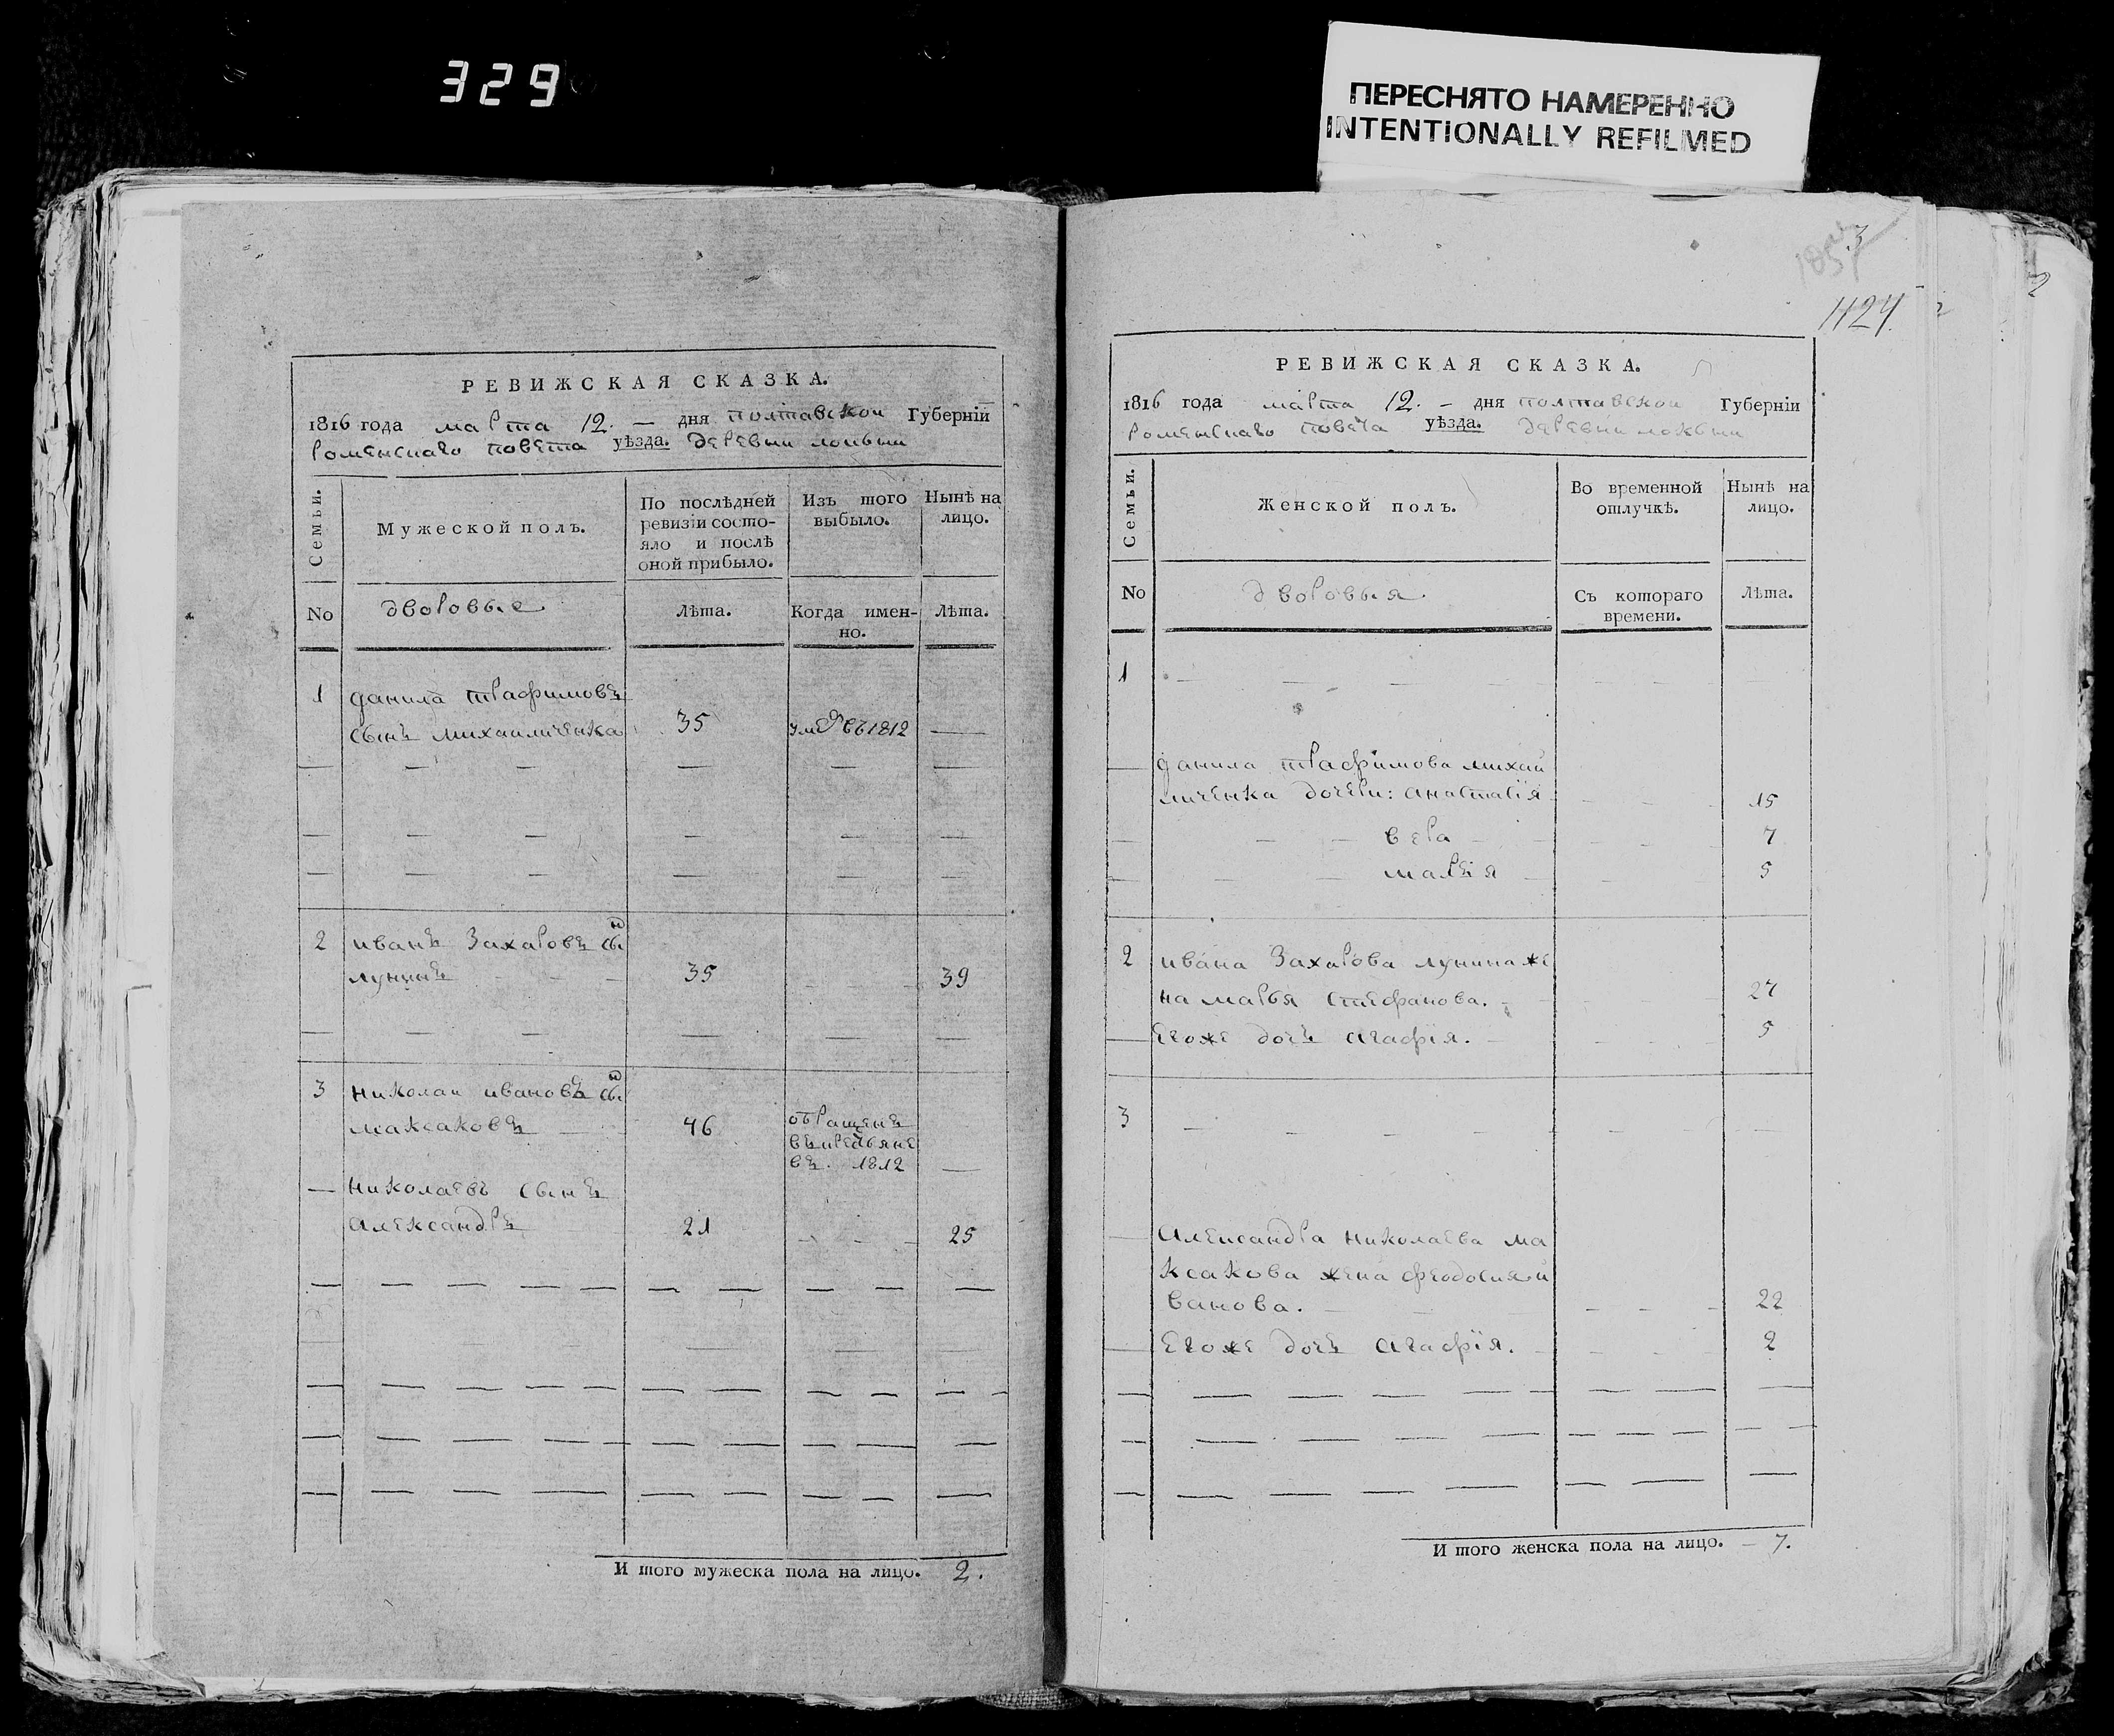 329
ПЕРЕСНЯТО НАМЕРЕННО
INTENTIONALLY REFILMED
РЕВИЖСКАЯ СКАЗКА.
1816 года марта 12. — дня полтавской Губернїй
роменскаго повета уѣзда. деревни
Семьи.
Мужеской полъ.
По послѣдней
ревизїи состо-
яло и послѣ
оной прибыло.
Изъ того
выбыло.
Нынѣ на
лицо.
No
дворовые
Лѣта.
Когда имен-
но.
Лѣта.
1 данила трафимовъ
сынъ михаиличенка 35 умеръ въ 1812 —
2 иванъ захаровъ сын
лунинъ 35 39
3 николаи ивановъ сын
максаковъ 46 обращенъ
въ крестьяне
въ. 1812 —
— николаевъ сынъ
александръ 21 25
И того мужеска пола на лицо. 2.
3
1424
2
РЕВИЖСКАЯ СКАЗКА.
1816 года марта 12. — дня полтавской Губерніи
роменскаго повета уѣзда. деревни
Семьи.
Женской полъ.
Во временной
отлучкѣ.
Нынѣ на
лицо.
No
дворовыя.
Съ котораго
времени.
Лѣта.
1
данила трафимова михаи
личенка дочери: анастасїя 15
вера 7
марїя 5
2 ивана захарова лунина же
на марья стефанова. 27
егоже дочь агафїя. 5
3
александра николаева ма
ксакова жена феодосия и
ванова. 22
егоже дочь агафїя. 2
И того женска пола на лицо. — 7.